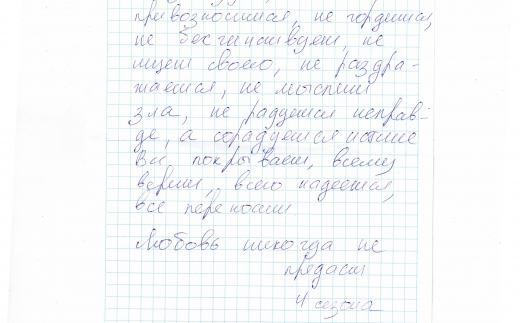 превозносится, не гордится,
не бесчинствует, не
ищет своего, не раздра-
жается, не мыслит
зла, не радуется неправ-
де, а сорадуется истине
Все покрывает, всему
верит, всего надеется,
все переносит
Любовь никогда не
предаст
4 сезона